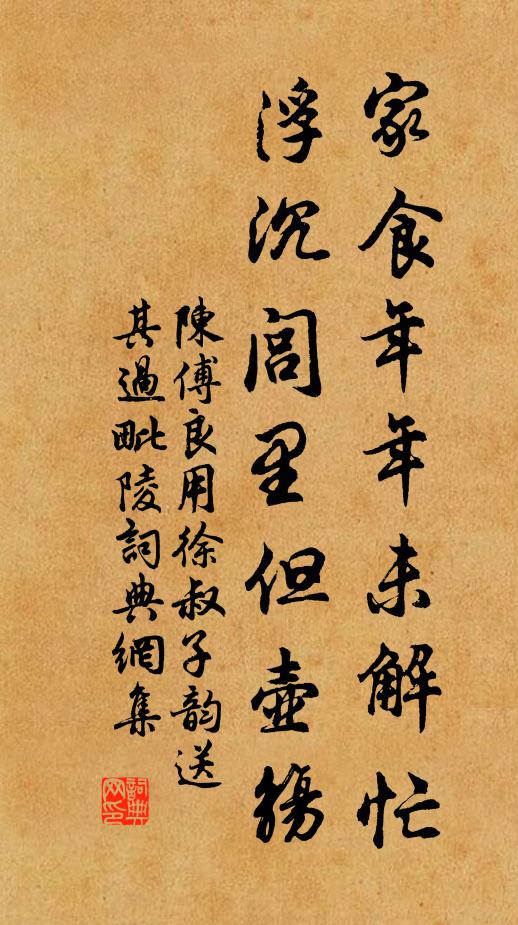 家食年年未解忙
浮沉闾里但壶觞
陳傅良用徐叔子韵送
其過毗陵詞典網集
詞典网印